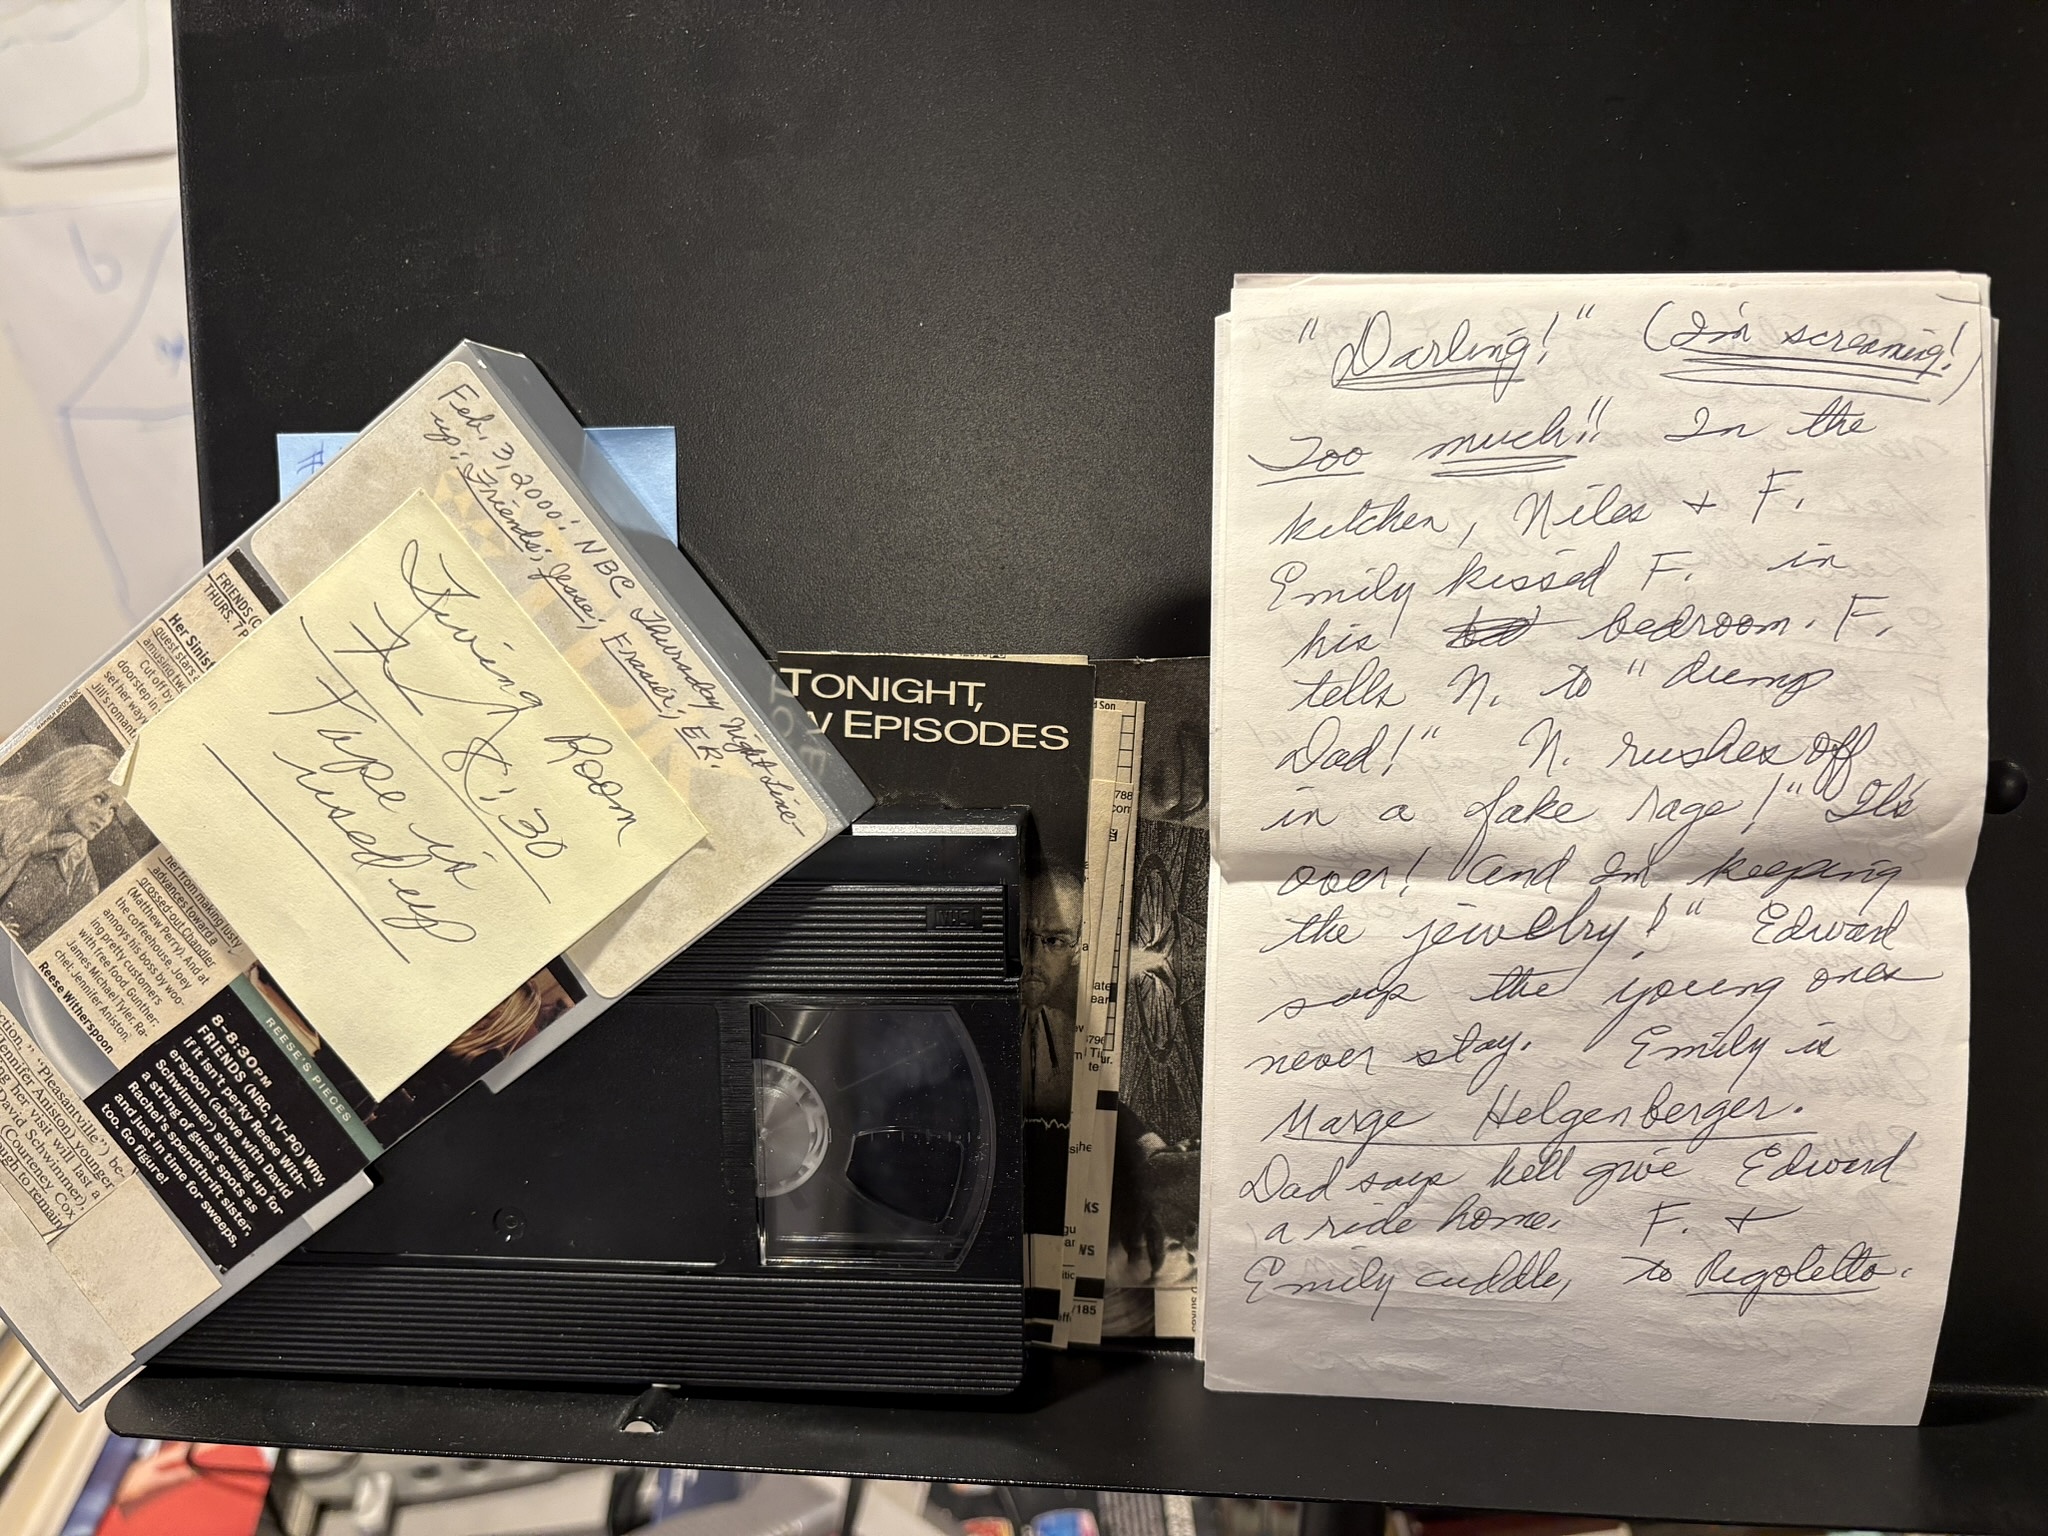 Feb. 3, 2000: NBC Thursday Night Line-
up: Friends; Jesse; Frasier; ER.
Living Room
TV 8:30
Tape is
used up
FRIENDS (C
THURS. 7P
Her Sinist
guest stars a
amusing tw
Cut off by
doorstep in
set her wayw
Jill's romanti
her from making lusty
advances toward a
grossed-out Chandler
(Matthew Perry). And at
the coffeehouse, Joey
annoys his boss by woo-
ing pretty customers
with free food. Gunther:
James Michael Tyler. Ra-
chel: Jennifer Aniston.
Reese Witherspoon
REESE'S PIECES
8-8:30PM
FRIENDS (NBC, TV-PG) Why,
if it isn't perky Reese With-
erspoon (above with David
Schwimmer) showing up for
a string of guest spots as
Rachel's spendthrift sister,
and just in time for sweeps,
too. Go figure!
ction," "Pleasantville") be-
Jennifer Aniston) younger
ng her visit will last a
David Schwimmer),
(Courteney Cox
ugh to remain
TONIGHT,
W EPISODES
VHS
d Son
788
/185
"Darling!" (I'm screaming!)
Too much!" In the
kitchen, Niles + F.
Emily kissed F. in
his bedroom. F.
tells N. to "dump
Dad!" N. rushes off
in a fake rage! "It's
over! And I'm keeping
the jewelry!" Edward
says the young ones
never stay. Emily is
Marge Helgenberger.
Dad says he'll give Edward
a ride home. F. +
Emily cuddle, to Rigoletto.